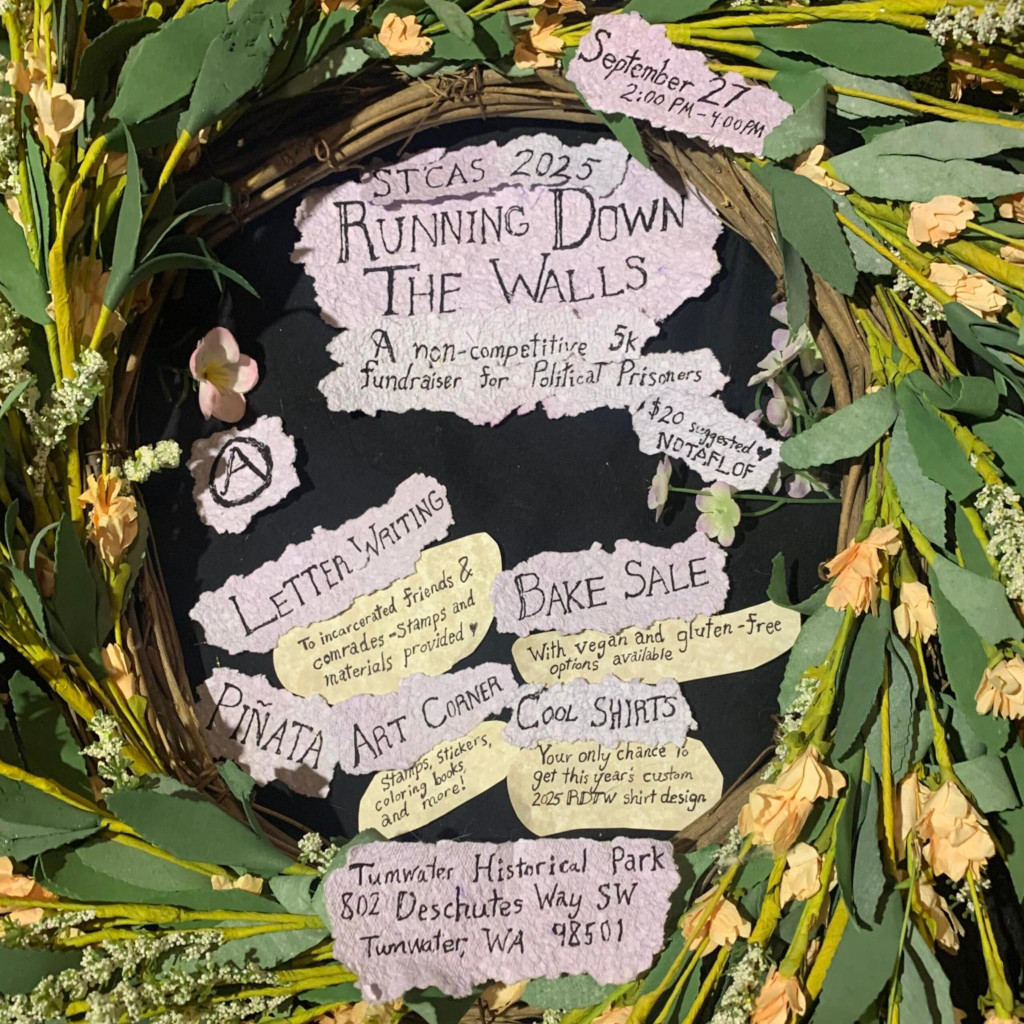 September 27
2:00 PM - 4:00PM
STCAS 2025
RUNNING DOWN
THE WALLS
A non-competitive 5k
fundraiser for Political Prisoners
$20 suggested ♥
NOTAFLOF
A
LETTER WRITING
To incarcerated friends &
comrades - Stamps and
materials provided ♥
BAKE SALE
With vegan and gluten-free
options available
PIÑATA
ART CORNER
Stamps, stickers,
coloring books,
and more!
COOL SHIRTS
Your only chance to
get this year's custom
2025 RDTW shirt design
Tumwater Historical Park
802 Deschutes Way SW
Tumwater, WA 98501